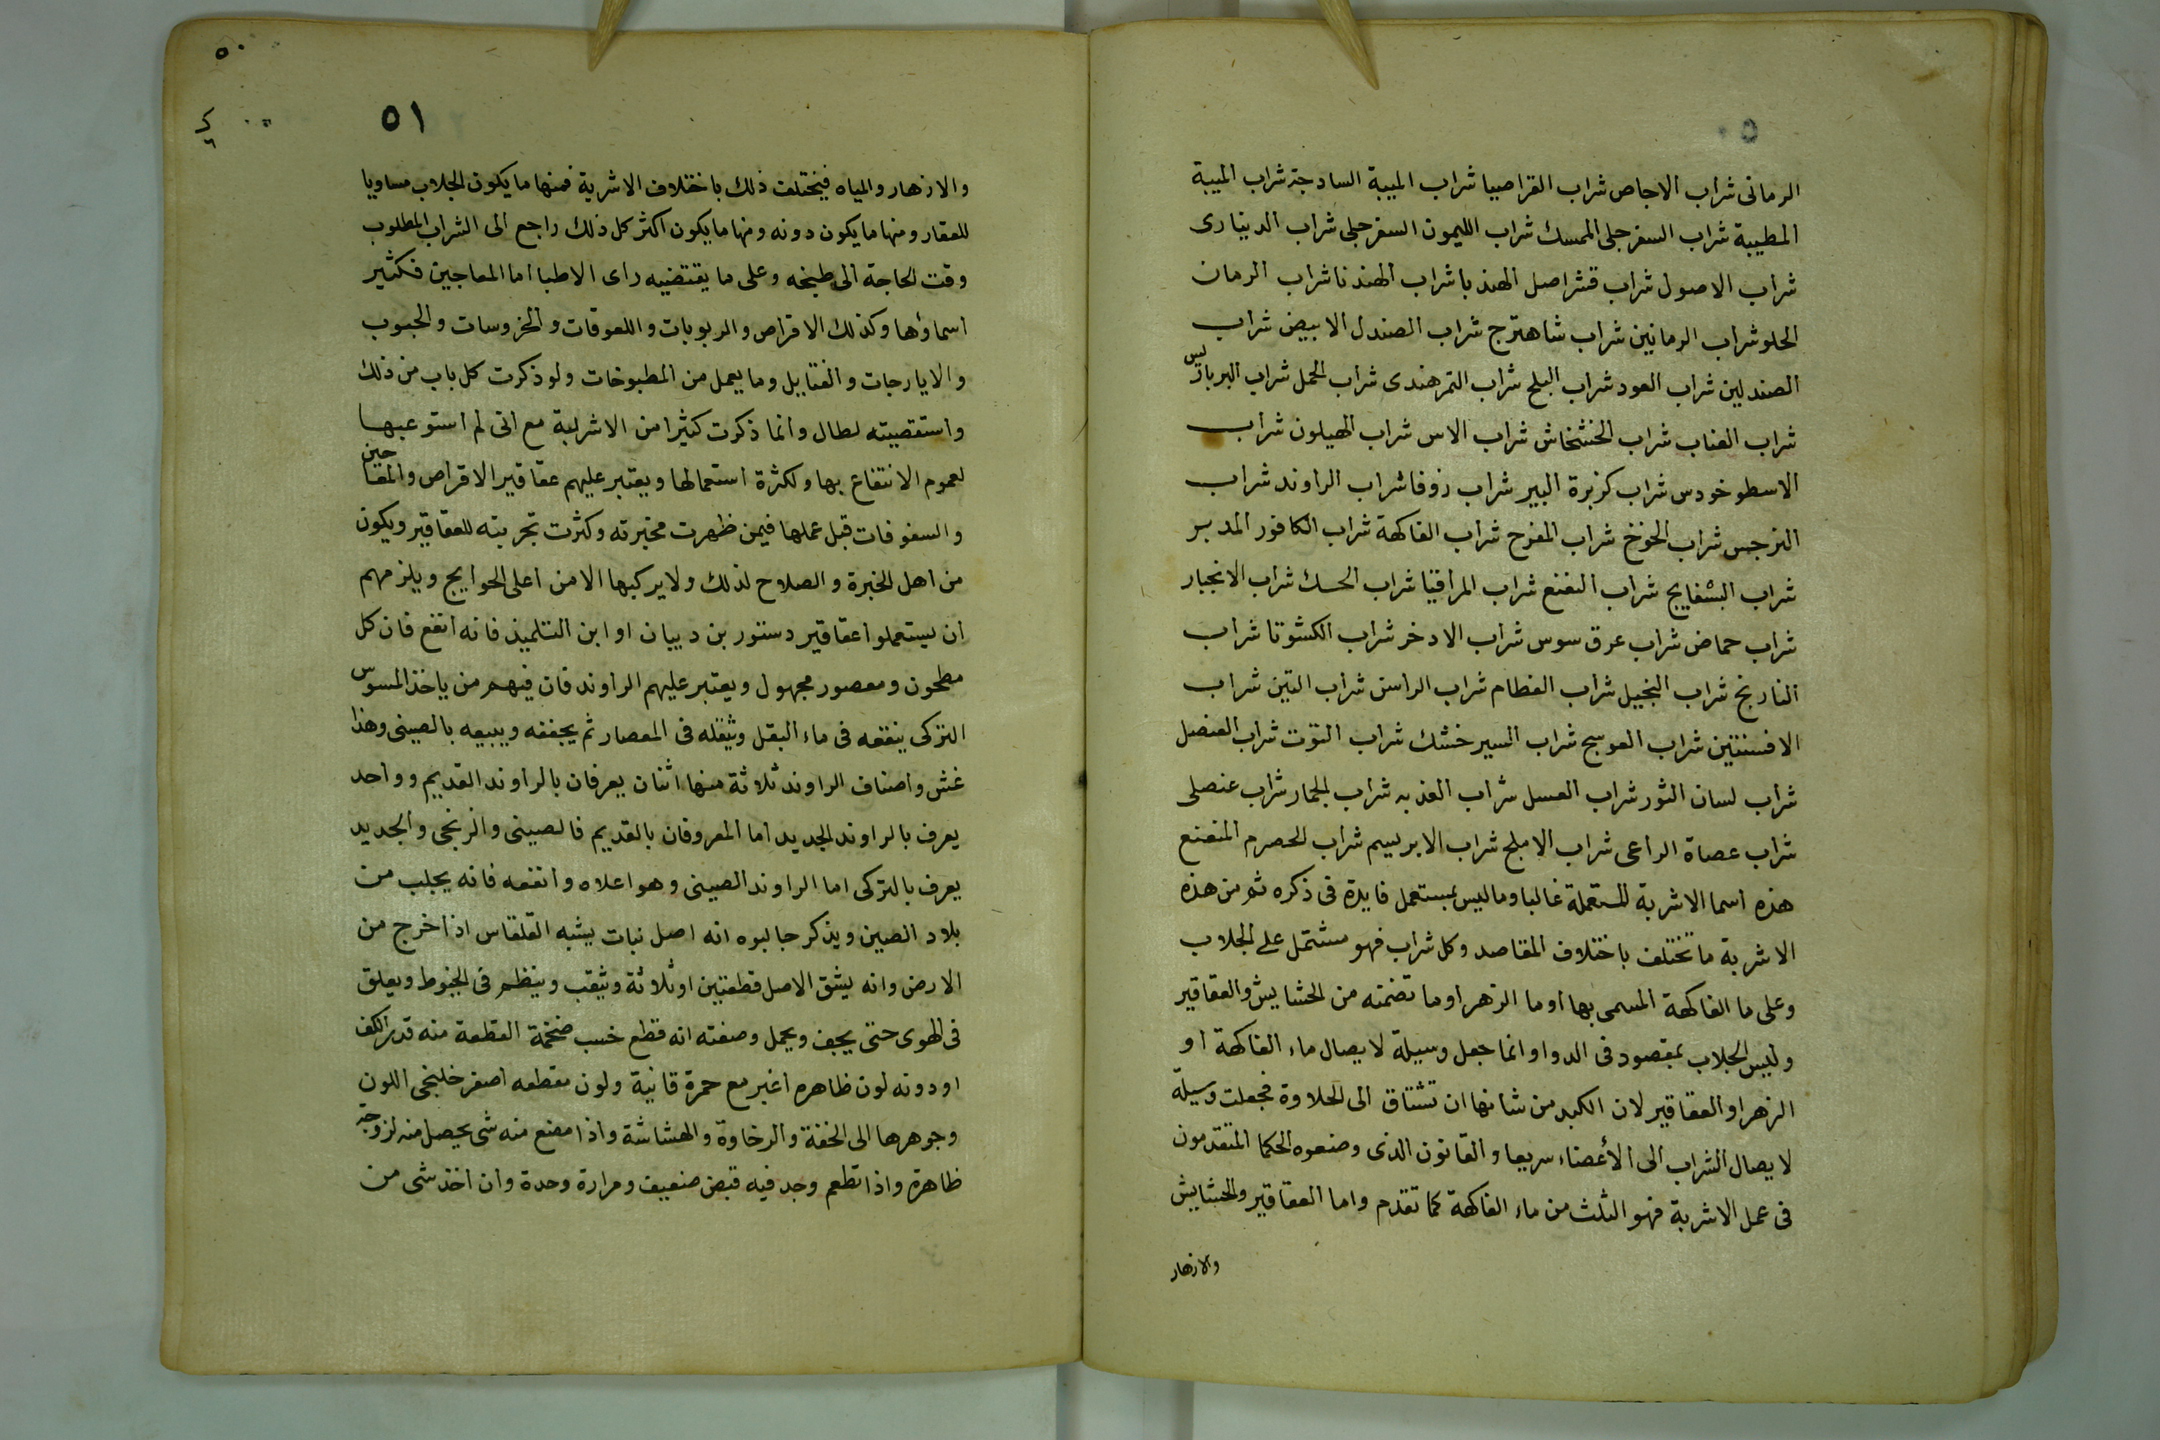 الرمانى شراب الاجاص شراب القراصيا شراب الميبة الساذجة شراب الميبة
المطيبة شراب السفرجلى الممسك شراب الليمون السفرجلى شراب الدينارى
شراب الاصول شراب قشر اصل الهندبا شراب الهندبا شراب الرمان
الحلو شراب الرمانين شراب شاهترج شراب الصندل الابيض شراب
الصندلين شراب العود شراب البلح شراب التمر هندى شراب الحمل شراب البرباريس
شراب العناب شراب الخشخاش شراب الاس شراب الهيلون شراب
الاسطوخودس شراب كزبرة البير شراب زوفا شراب الراوند شراب
النرجس شراب الخوخ شراب المفرح شراب الفاكهة شراب الكافور المدبر
شراب البسفايج شراب النعنع شراب المراقيا شراب الحسك شراب الانجبار
شراب حماض شراب عرق سوس شراب الادخر شراب الكشوتا شراب
النارنج شراب النجيل شراب الفطام شراب الراسن شراب التين شراب
الافسنتين شراب العوسج شراب السيرخشك شراب التوت شراب العنصل
شراب لسان الثور شراب العسل شراب العذبه شراب الجمار شراب عنصلى
شراب عصاة الراعى شراب الاملج شراب الابريسم شراب الحصرم المنعنع
هذه اسما الاشربة المستعملة غالبا وما ليس بمستعمل فايدة فى ذكره ثم من هذه
الاشربة ما تختلف باختلاف المقاصد وكل شراب فهو مشتمل على الجلاب
وعلى ما الفاكهة المسمى بها او ما الزهر او ما تضمنه من الحشايش والعقاقير
وليس الجلاب بمقصود فى الدوا وانما جعل وسيلة لايصال ماء الفاكهة او
الزهر او العقاقير لان الكبد من شانها ان تشتاق الى الحلاوة فجعلت وسيلة
لايصال الشراب الى الأعضاء سريعا والقانون الذى وضعوه الحكما المتقدمون
فى عمل الاشربة فهو الثلث من ماء الفاكهة كما تقدم واما العقاقير والحشايش
والازهار
٥٠
٥١
والازهار والمياه فيختلف ذلك باختلاف الاشربة فمنها ما يكون الجلاب مساويا
للعقار ومنها ما يكون دونه ومنها ما يكون اكثر كل ذلك راجع الى الشراب المطلوب
وقت الحاجة الى طبخه وعلى ما يقتضيه راى الاطبا اما المعاجين فكثير
اسماؤها وكذلك الاقراص والربوبات واللعوقات والجزوسات والحبوب
والايارجات والفتايل وما يعمل من المطبوخات ولو ذكرت كل باب من ذلك
واستقصيته لطال وانما ذكرت كثيرا من الاشربة مع انى لم استوعبها
لعموم الانتفاع بها ولكثرة استعمالها ويعتبر عليهم عقاقير الاقراص والمعاجين
والسفوفات قبل عملها فيمن ظهرت مخبرته وكثرت تجربته للعقاقير ويكون
من اهل الخبرة والصلاح لذلك ولا يركبها الا من اعلى الحوايج ويلزمهم
ان يستعملوا عقاقير دستور بن دبيان او ابن التلميذ فانه انفع فان كل
مطحون ومعصور مجهول ويعتبر عليهم الراوند فان فيهم من ياخذ المسوس
التركى ينقعه فى ماء البقل وثقله فى المعصار ثم يجففه ويبيعه بالصينى وهذا
غش واصناف الراوند ثلاثة منها اثنان يعرفان بالراوند القديم وواحد
يعرف بالراوند الجديد اما المعروفان بالقديم فالصينى والزنجى والجديد
يعرف بالتركى اما الراوند الصينى وهو اعلاه وانفعه فانه يجلب من
بلاد الصين ويذكر جالبوه انه اصل نبات يشبه القلقاس اذا خرج من
الارض وانه يشق الاصل قطعتين او ثلاثة وثيقب وينظم فى الخيوط ويعلق
فى الهوى حتى يجف ويحمل وصفته انه قطع خسب ضخمة القطعة منه قدر الكف
او دونه لون ظاهره اغبر مع حمرة قانية ولون مقطعه اصفر خلنجى اللون
وجوهرها الى الخفة والرخاوة والهشاشة واذا مضغ منه شى يحصل منه لزوجة
ظاهرة واذا تطعم وجد فيه قبض ضعيف ومرارة وحدة وان اخذ شى من